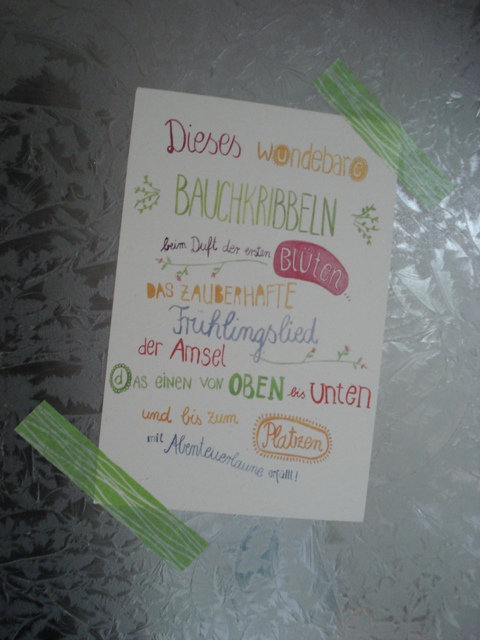 Dieses wundebare
BAUCHKRIBBELN
beim Duft der ersten BLÜTEN...
DAS ZAUBERHAFTE
Frühlingslied
der Amsel
dAS EINEN VON OBEN bis Unten
und bis zum Platzen
mit Abenteuerlaune erfüllt!